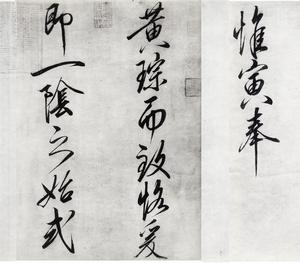 惟寅奉
黃琮而致恪爰
即一陰之始式